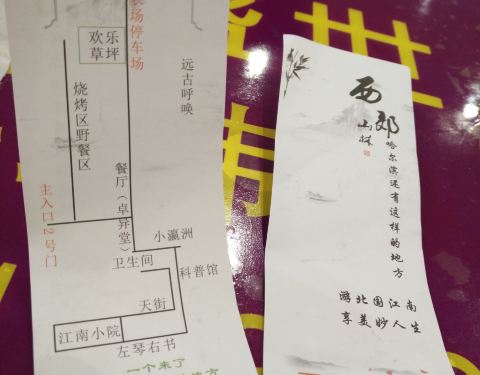 农场停车场
欢乐
草坪
远古呼唤
烧烤区野餐区
餐厅（卓异堂）
主入口2号门
小瀛洲
卫生间
科普馆
天街
江南小院
左琴右书
一个来了
西郊
山林
哈尔滨还有这样的地方
游北国江南
享美妙人生
世